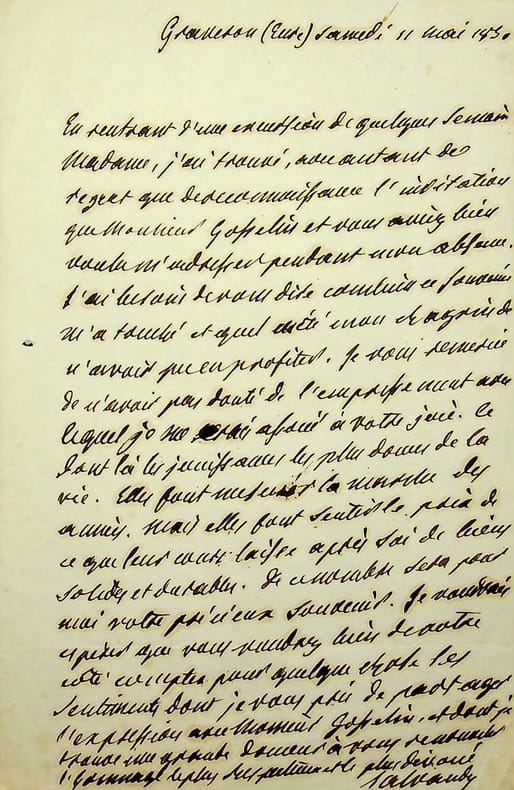 Graveron (Eure) samedi 11 mai 1850
En rentrant d'une excursion de quelques semaines
Madame, j'ai trouvé, avec autant de
regret que de reconnaissance l'invitation
que Monsieur Gosselin et vous aviez bien
voulu m'adresser pendant mon absence.
J'ai besoin de vous dire combien ce souvenir
m'a touché et quel a été mon chagrin de
n'avoir pu en profiter. Je vous remercie
de n'avoir pas douté de l'empressement avec
lequel je me serais associé à votre joie. Ce
sont là les jouissances les plus douces de la
vie. Elles font mesurer la marche des
années. Mais elles font sentir le prix de
ce que leur cours laisse après soi de biens
solides et durables. De ce nombre sera pour
moi votre précieux souvenir. Je voudrais
espérer que vous voudrez bien de votre
côté compter pour quelque chose les
sentiments dont je vous prie de partager
l'expression avec Monsieur Gosselin, et dont je
trouve une grande douceur à vous renouveler
l'hommage le plus respectueux et le plus dévoué
Salvandy